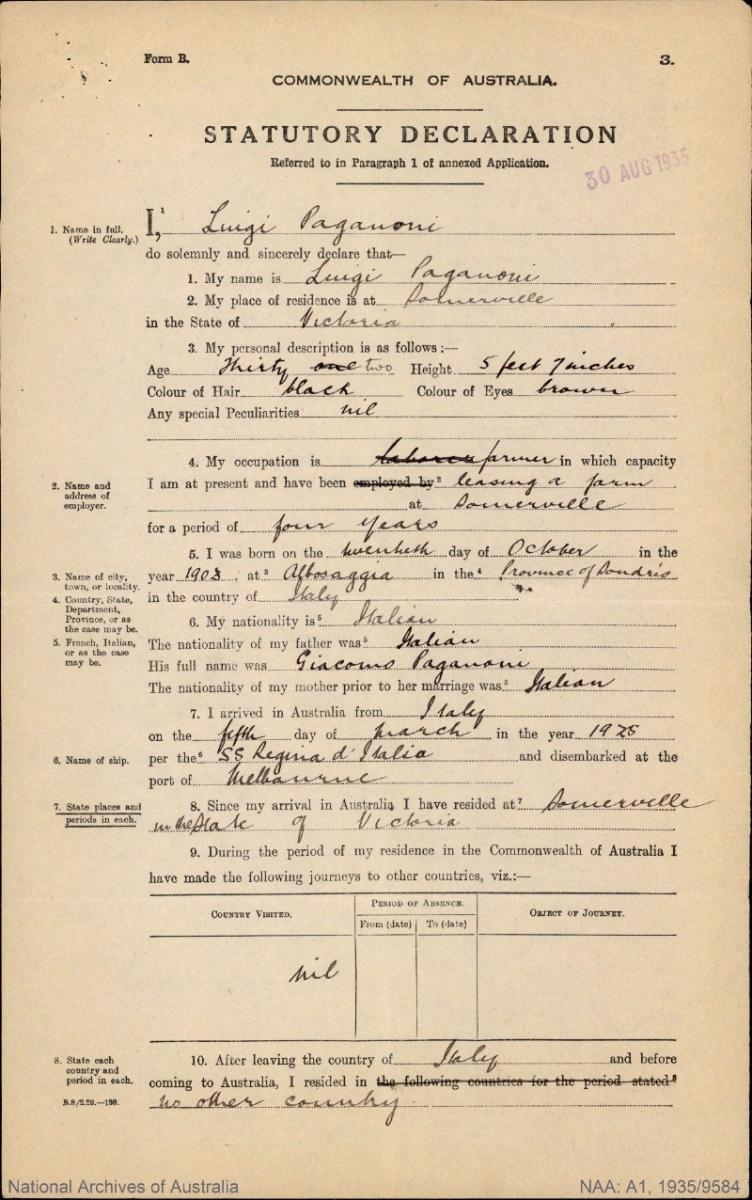 Form B.
3.
COMMONWEALTH OF AUSTRALIA.
STATUTORY DECLARATION
Referred to in Paragraph 1 of annexed Application.
30 AUG 1935
1. Name in full.
(Write Clearly.)
I,¹ Luigi Paganoni
do solemnly and sincerely declare that—
1. My name is Luigi Paganoni
2. My place of residence is at Somerville
in the State of Victoria
3. My personal description is as follows:—
Age Thirty one two Height 5 feet 7 inches
Colour of Hair black Colour of Eyes brown
Any special Peculiarities nil
4. My occupation is laborer farmer in which capacity
2. Name and
address of
employer.
I am at present and have been employed by² leasing a farm
at Somerville
for a period of four years
5. I was born on the twentieth day of October in the
3. Name of city,
town, or locality.
year 1903, at³ Albosaggia in the⁴ Province of Sondrio
4. Country, State,
Department,
Province, or as
the case may be.
in the country of Italy
6. My nationality is⁵ Italian
5. French, Italian,
or as the case
may be.
The nationality of my father was⁵ Italian
His full name was Giacomo Paganoni
The nationality of my mother prior to her marriage was⁵ Italian
7. I arrived in Australia from Italy
on the fifth day of march in the year 1925
6. Name of ship.
per the⁶ SS Regina d'Italia and disembarked at the
port of Melbourne
7. State places and
periods in each.
8. Since my arrival in Australia I have resided at⁷ Somerville
in the State of Victoria
9. During the period of my residence in the Commonwealth of Australia I
have made the following journeys to other countries, viz.:—
COUNTRY VISITED.
PERIOD OF ABSENCE.
From (date)
To (date)
OBJECT OF JOURNEY.
nil
8. State each
country and
period in each.
10. After leaving the country of Italy and before
coming to Australia, I resided in the following countries for the period stated⁸
no other country
B.S/2.29.—100.
National Archives of Australia
NAA: A1, 1935/9584